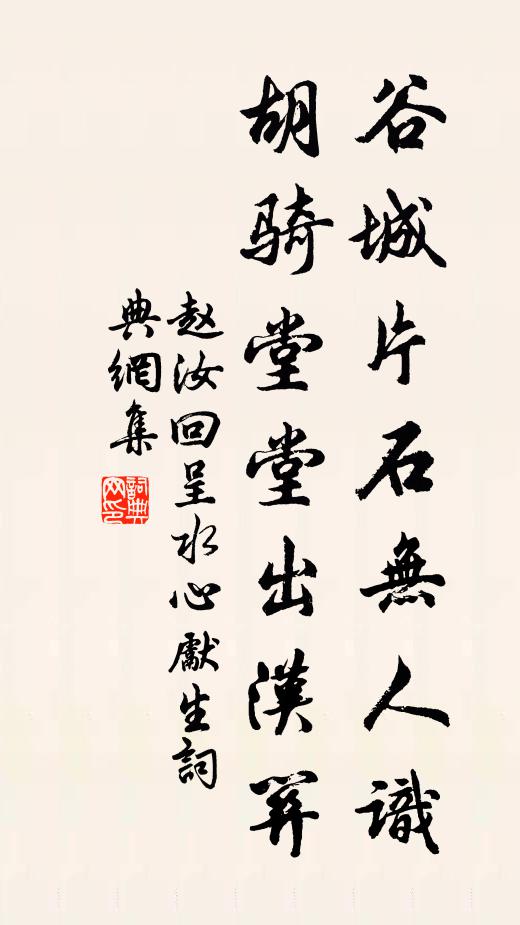 谷城片石無人識
胡骑堂堂出漢關
赵汝回呈水心獻生詞
典網集
詞典
网印